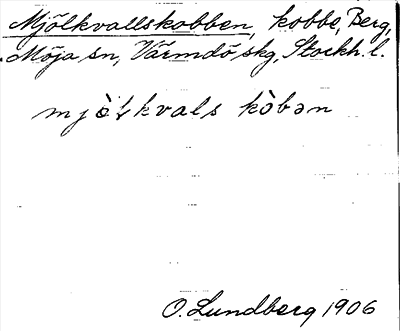 Mjölkvallskobben, kobbe, Berg,
Möja sn, Värmdö skg, Stockh. l.
mjò̤ḷkvals kòbən
O. Lundberg 1906